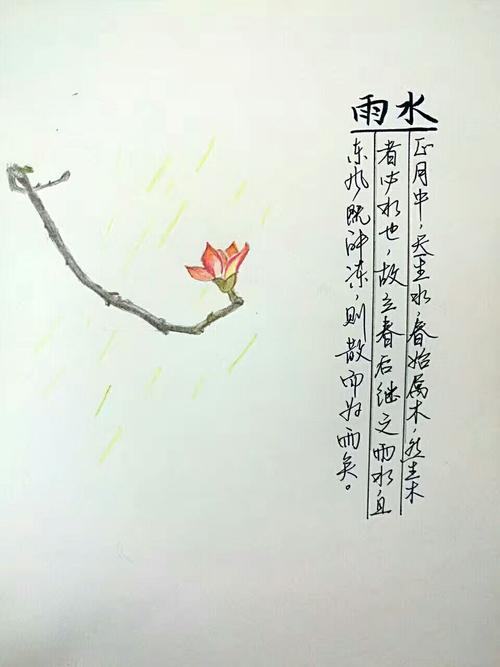 雨水
正月中，天生水，春始属木，然生木
者必水也，故立春后继之雨水且
东风既冻，则散而为雨矣。